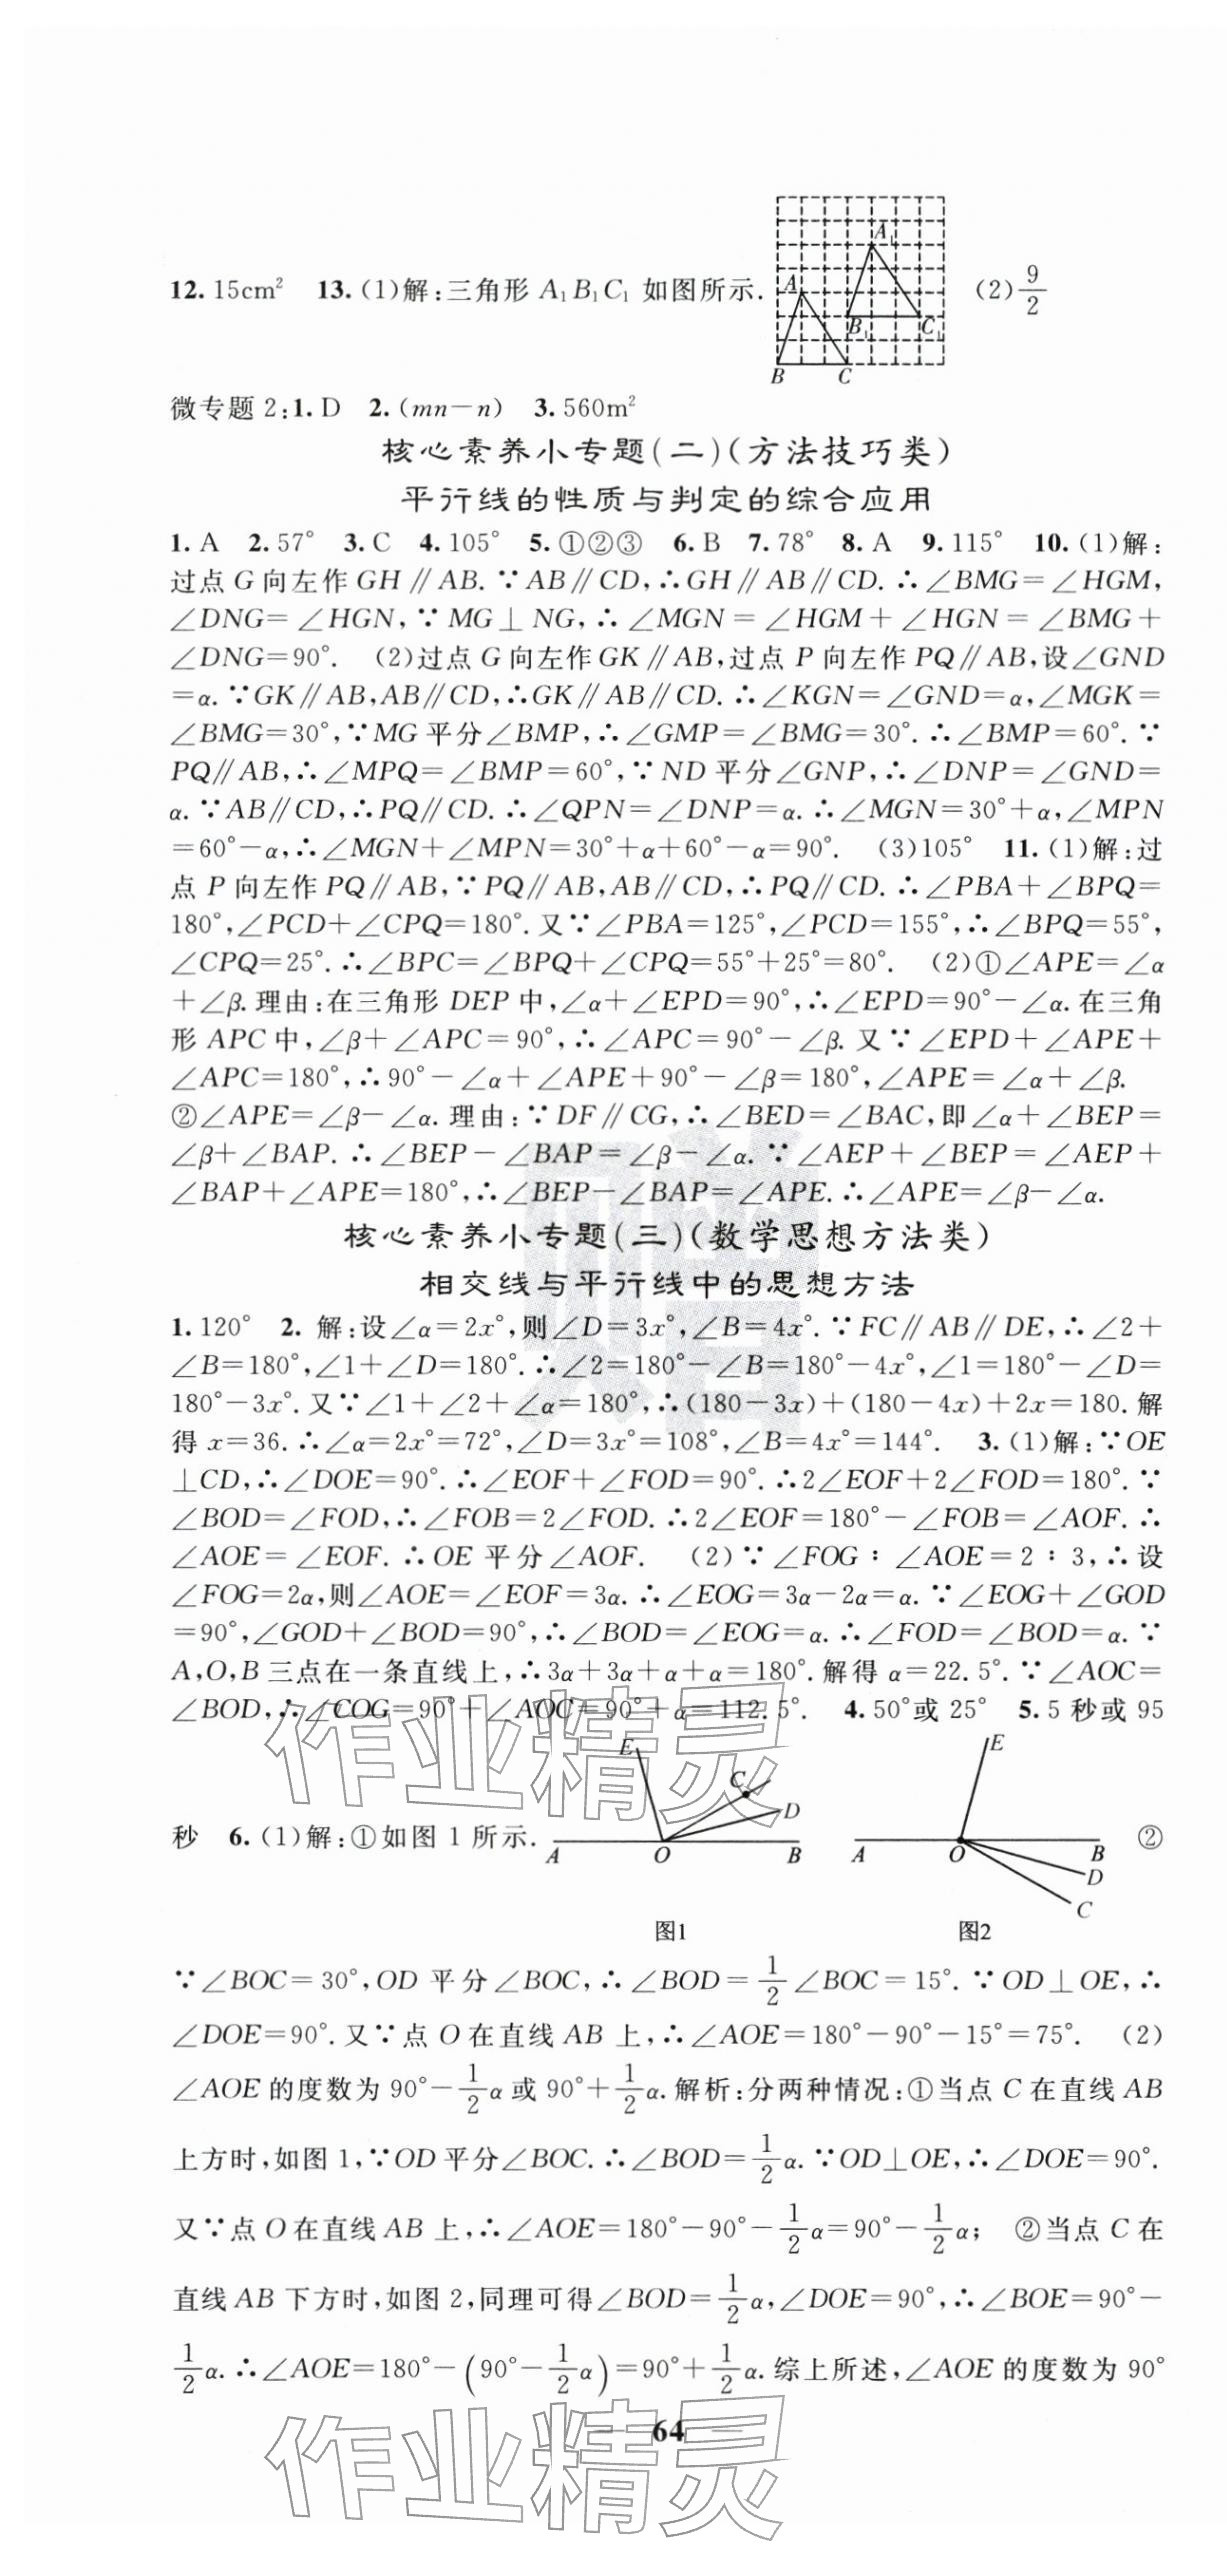 12. 15cm² 13. (1)解:三角形 A₁B₁C₁ 如图所示. A A₁ B₁ C₁ B C (2) 9/2
微专题 2:1. D 2. (mn-n) 3. 560m²
核心素养小专题(二)(方法技巧类)
平行线的性质与判定的综合应用
1. A 2. 57° 3. C 4. 105° 5. ①②③ 6. B 7. 78° 8. A 9. 115° 10. (1)解:
过点 G 向左作 GH∥AB. ∵AB∥CD,∴GH∥AB∥CD. ∴∠BMG=∠HGM,
∠DNG=∠HGN,∵MG⊥NG,∴∠MGN=∠HGM+∠HGN=∠BMG+
∠DNG=90°. (2)过点 G 向左作 GK∥AB,过点 P 向左作 PQ∥AB,设∠GND
=α. ∵GK∥AB,AB∥CD,∴GK∥AB∥CD. ∴∠KGN=∠GND=α,∠MGK=
∠BMG=30°,∵MG 平分∠BMP,∴∠GMP=∠BMG=30°. ∴∠BMP=60°. ∵
PQ∥AB,∴∠MPQ=∠BMP=60°,∵ND 平分∠GNP,∴∠DNP=∠GND=
α. ∵AB∥CD,∴PQ∥CD. ∴∠QPN=∠DNP=α. ∴∠MGN=30°+α,∠MPN
=60°-α,∴∠MGN+∠MPN=30°+α+60°-α=90°. (3)105° 11. (1)解:过
点 P 向左作 PQ∥AB,∵PQ∥AB,AB∥CD,∴PQ∥CD. ∴∠PBA+∠BPQ=
180°,∠PCD+∠CPQ=180°. 又∵∠PBA=125°,∠PCD=155°,∴∠BPQ=55°,
∠CPQ=25°. ∴∠BPC=∠BPQ+∠CPQ=55°+25°=80°. (2)①∠APE=∠α
+∠β. 理由:在三角形 DEP 中,∠α+∠EPD=90°,∴∠EPD=90°-∠α. 在三角
形 APC 中,∠β+∠APC=90°,∴∠APC=90°-∠β. 又∵∠EPD+∠APE+
∠APC=180°,∴90°-∠α+∠APE+90°-∠β=180°,∠APE=∠α+∠β.
②∠APE=∠β-∠α. 理由:∵DF∥CG,∴∠BED=∠BAC,即∠α+∠BEP=
∠β+∠BAP. ∴∠BEP-∠BAP=∠β-∠α. ∵∠AEP+∠BEP=∠AEP+
∠BAP+∠APE=180°,∴∠BEP-∠BAP=∠APE. ∴∠APE=∠β-∠α.
核心素养小专题(三)(数学思想方法类)
相交线与平行线中的思想方法
1. 120° 2. 解:设∠α=2x°,则∠D=3x°,∠B=4x°. ∵FC∥AB∥DE,∴∠2+
∠B=180°,∠1+∠D=180°. ∴∠2=180°-∠B=180°-4x°,∠1=180°-∠D=
180°-3x°. 又∵∠1+∠2+∠α=180°,∴(180-3x)+(180-4x)+2x=180. 解
得 x=36. ∴∠α=2x°=72°,∠D=3x°=108°,∠B=4x°=144°. 3. (1)解:∵OE
⊥CD,∴∠DOE=90°. ∴∠EOF+∠FOD=90°. ∴2∠EOF+2∠FOD=180°. ∵
∠BOD=∠FOD,∴∠FOB=2∠FOD. ∴2∠EOF=180°-∠FOB=∠AOF. ∴
∠AOE=∠EOF. ∴OE 平分∠AOF. (2)∵∠FOG:∠AOE=2:3,∴设
∠FOG=2α,则∠AOE=∠EOF=3α. ∴∠EOG=3α-2α=α. ∵∠EOG+∠GOD
=90°,∠GOD+∠BOD=90°,∴∠BOD=∠EOG=α. ∴∠FOD=∠BOD=α. ∵
A,O,B 三点在一条直线上,∴3α+3α+α+α=180°. 解得 α=22.5°. ∵∠AOC=
∠BOD,∴∠COG=90°+∠AOC=90°+α=112.5°. 4. 50°或 25° 5. 5 秒或 95
秒 6. (1)解:①如图 1 所示. E C D A O B E A O B D C ②
图1 图2
∵∠BOC=30°,OD 平分∠BOC,∴∠BOD=1/2∠BOC=15°. ∵OD⊥OE,∴
∠DOE=90°. 又∵点 O 在直线 AB 上,∴∠AOE=180°-90°-15°=75°. (2)
∠AOE 的度数为 90°-1/2α 或 90°+1/2α. 解析:分两种情况:①当点 C 在直线 AB
上方时,如图 1,∵OD 平分∠BOC. ∴∠BOD=1/2α. ∵OD⊥OE,∴∠DOE=90°.
又∵点 O 在直线 AB 上,∴∠AOE=180°-90°-1/2α=90°-1/2α; ②当点 C 在
直线 AB 下方时,如图 2,同理可得∠BOD=1/2α,∠DOE=90°,∴∠BOE=90°-
1/2α. ∴∠AOE=180°-(90°-1/2α)=90°+1/2α. 综上所述,∠AOE 的度数为 90°
64
赠
作业精灵
作业精灵